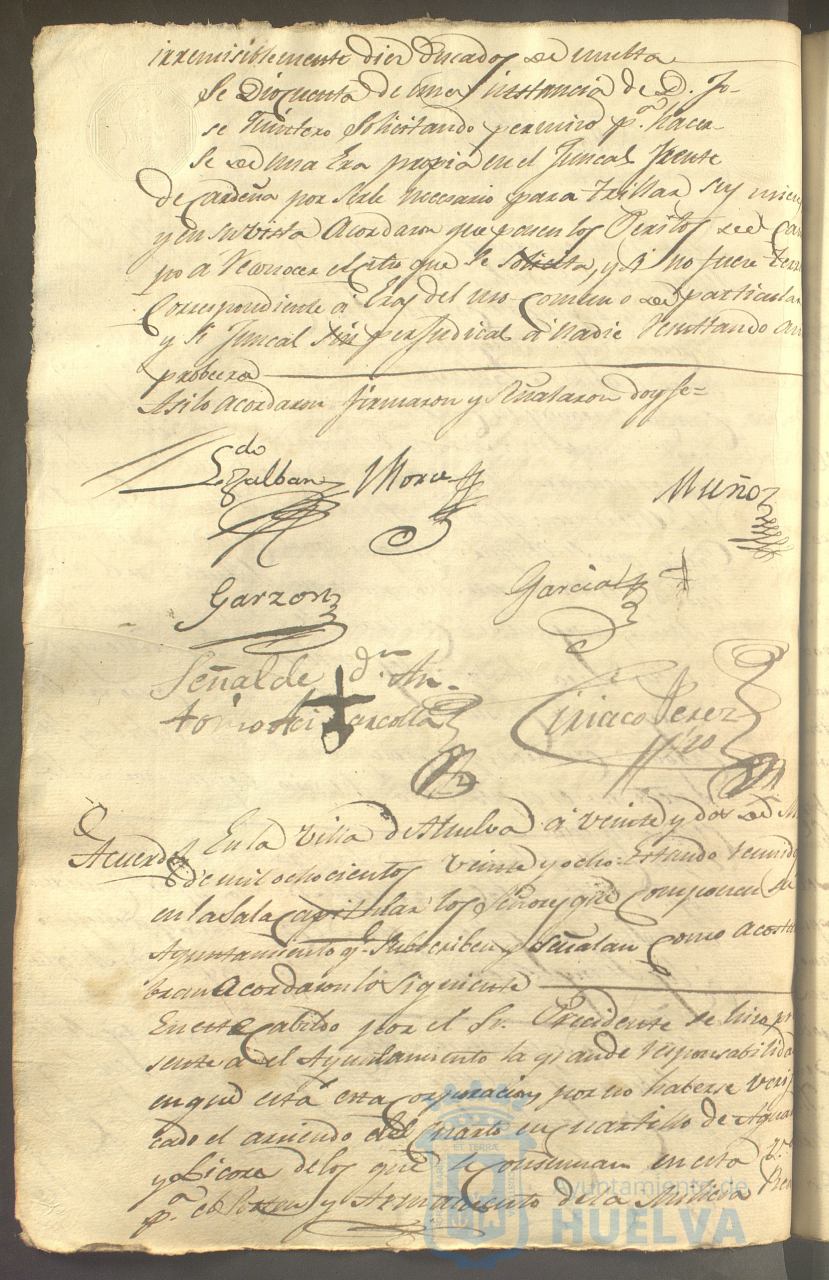 irremisiblemente diez ducados de multa
Se Dio cuenta de una instancia de D. Jo-
se Quintero Solicitando permiso pa. hacer
se de una Era propia en el Juncal frente
de Cardeña por serle necesario para trillar sus mie
y en su vista Acordaron que pasen los Peritos de Cam
po á Reconocer el sitio que se solicita, y si no fuere terre
Correspondiente á Eras del uso comun o de particular
y si Juncal sin perjudicar á Nadie Resultando a
probeera
Asi lo acordaron firmaron y Señalaron doy fe=
Ldo Zalban Mora Muñoz
Garzon Garcia
Señal de dn. An-
tonio de Garcolla
Ciriaco Perez
Acuerdo En la Villa de Huelva á veinte y dos de M
de mil ochocientos veinte y ocho: Estando reunido
en la Sala Capitular los Señores que componen su
Ayuntamiento q. Subscriben y Señalan como acostu
bran Acordaron lo siguiente
En este Cabildo por el Sr. Precidente se hizo pr
sente á el Ayuntamiento la grande responsabilida
en que está esta Corporacion por no haberse verif
cado el arriendo del quarto en quartillo de Aguar
y Licores de los que se Consuman en esta Va.
pa. el y Armamento de la Milicia Rea
Ayuntamiento de
HUELVA